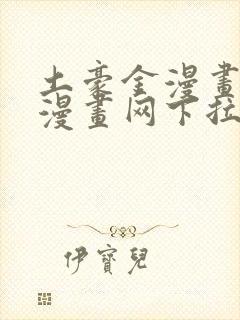 土豪金漫畫
漫畫网下拉
伊寶兒